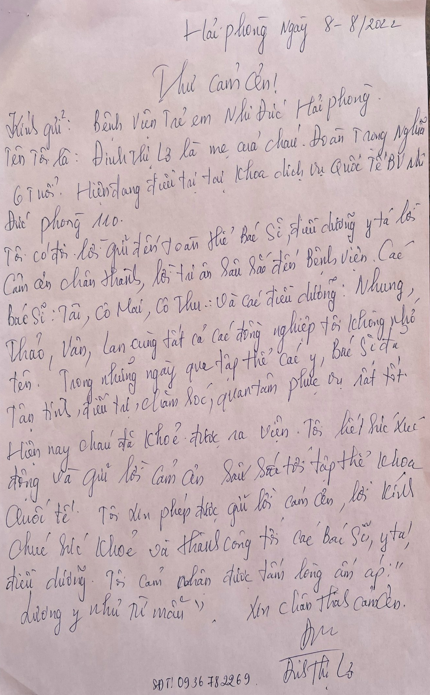 Hải phòng Ngày 8-8/2022
Thư cảm ơn!
Kính gửi: Bệnh Viện Trẻ em Nhi Đức Hải phòng.
Tên Tôi là: Đinh Thị Lơ là mẹ của cháu. Đoàn Trọng Nghĩa
6 Tuổi. Hiện đang điều trị tại Khoa dịch vụ Quốc Tế BV Nhi
Đức phòng 110.
Tôi có đôi lời gửi đến toàn thể Bác Sĩ, điều dưỡng y tá lời
Cảm ơn chân thành, lời tri ân sâu sắc đến Bệnh viện. Các
Bác Sĩ: Tài, Cô Mai, Cô Thu.: và các điều dưỡng: Nhung,
Thảo, Vân, Lan cùng tất cả các đồng nghiệp tôi không nhớ
tên. Trong những ngày qua tập thể các y, Bác Sĩ đã
Tận tình, điều trị, chăm sóc, quan tâm phục vụ rất tốt
Hiện nay cháu đã khoẻ được ra viện. Tôi hết sức xúc
động và gửi lời cảm ơn sâu sắc tới tập thể Khoa
Quốc tế. Tôi xin phép được gửi lời cảm ơn, lời kính
chúc sức khoẻ và thành công tới các Bác Sĩ, y tá,
điều dưỡng. Tôi cảm nhận được tấm lòng ấm áp: "
lương y như từ mẫu". Xin chân thành cảm ơn.
Đinh Thị Lơ
SĐT: 0936782269.